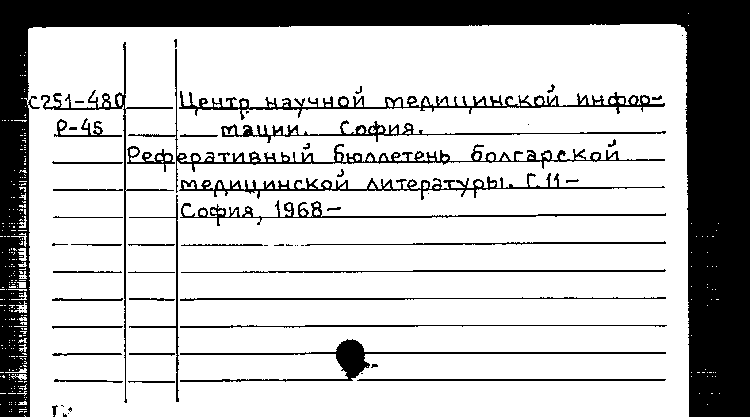 С251-480 Центр научной медицинской инфор-
Р-45 мации. София.
Реферативный бюллетень болгарской
медицинской литературы. Г.11-
София, 1968-